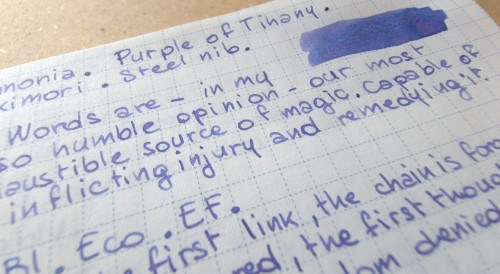 nonia. Purple of Tihany.
kimori. Steel nib.
Words are – in my
so humble opinion – our most
austible source of magic. Capable of
inflicting injury and remedying it.
BI. Eco. EF.
first link, the chain is forg
red, the first though
dom denied